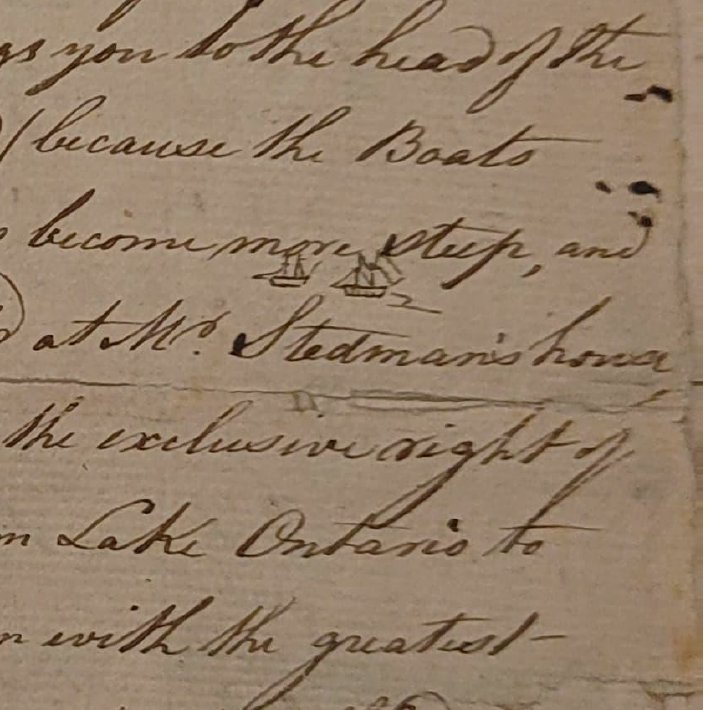 you to the head of the
because the Boats
become more steep, and
at Mr. Stedman's house
the exclusive right of
Lake Ontario to
with the greatest